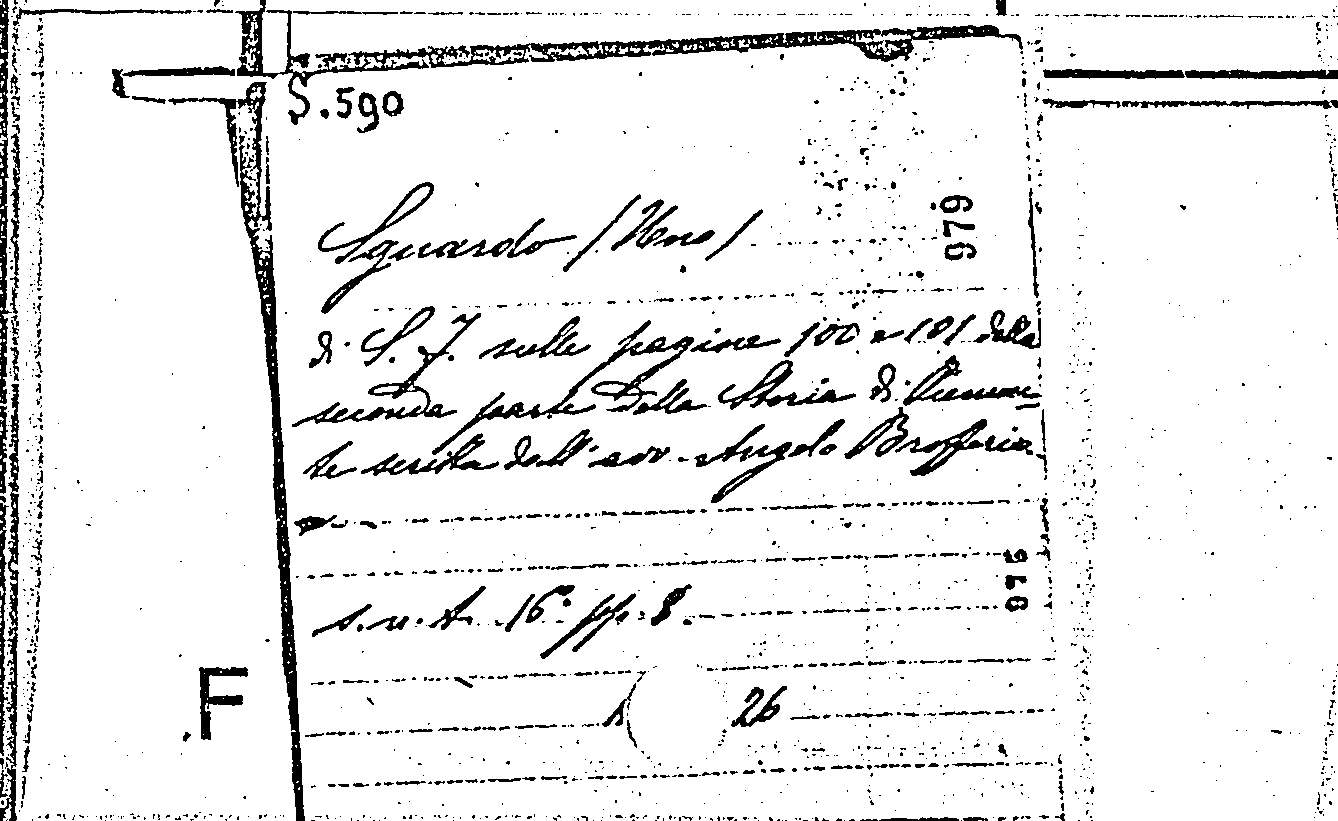 S.590
Sguardo (Uno)
979
di S. J. sulle pagine 100 e 101 della
seconda parte della Storia di Piemon-
te scritta dall'avv. Angelo Brofferio.
976
s.n.t. 16° pp. 8.
26
F